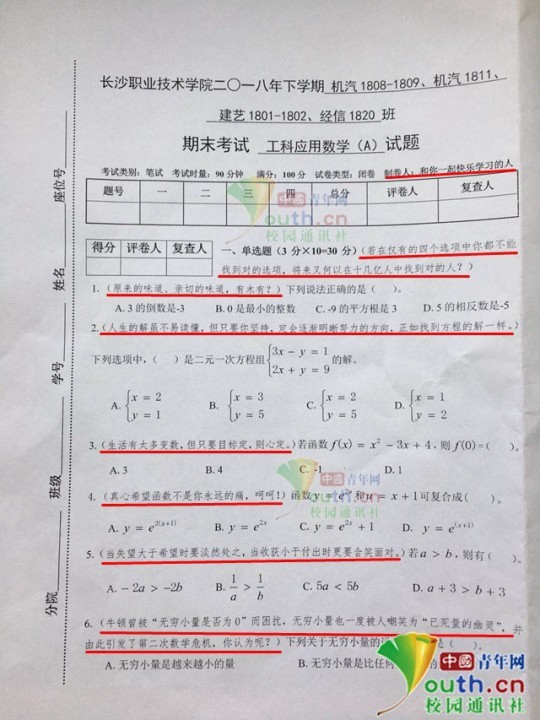 长沙职业技术学院二〇一八年下学期 机汽1808-1809、机汽1811、
建艺1801-1802、经信1820 班
期末考试 工科应用数学（A）试题
考试类别：笔试 考试时量：90分钟 满分：100分 试卷类型：闭卷 制卷人：和你一起快乐学习的人
题号 一 二 三 四 总分 评卷人 复查人
得分 评卷人 复查人
一、单选题（3分×10=30分）（若在仅有的四个选项中你都不能
找到对的选项，将来又何以在十几亿人中找到对的人？）
1.（原来的味道、亲切的味道，有木有？）下列说法正确的是（ ）。
A. 3的倒数是-3 B. 0是最小的整数 C. -9的平方根是3 D. 5的相反数是-5
2.（人生的解虽不易读懂，但只要你坚持，定会逐渐明晰努力的方向，正如找到方程的解一样。）
下列选项中，（ ）是二元一次方程组{3x − y = 1
2x + y = 9 的解。
A. {x = 2 B. {x = 3 C. {x = 2 D. {x = 1
y = 1 y = 5 y = 5 y = 2
3.（生活有太多变数，但只要目标定，则心定。）若函数 f(x) = x² − 3x + 4，则 f(0)=（ ）。
A. 3 B. 4 C. -1 D. 1
4.（真心希望函数不是你永远的痛，呵呵！）函数 y = e²ˣ 和 u = x + 1 可复合成（ ）。
A. y = e²⁽ˣ⁺¹⁾ B. y = e²ˣ C. y = e²ˣ + 1 D. y = e⁽ˣ⁺¹⁾
5.（当失望大于希望时要淡然处之，当收获小于付出时更要含笑面对。）若 a > b，则有（ ）。
A. −2a > −2b B. 1/a > 1/b C. 5a < 5b D. a + 3 > b + 3
6.（牛顿曾被“无穷小量是否为0”而困扰，无穷小量也一度被人嘲笑为“已死量的幽灵”，并
由此引发了第二次数学危机，你认为呢？）下列关于无穷小量的 是（ ）。
A. 无穷小量是越来越小的量 B. 无穷小量是比任何
座位号
姓名
学号
班级
分院
中國青年网
Youth.cn
校园通讯社
中國青年网
校园通讯社
中國青年网
Youth.cn
校园通讯社